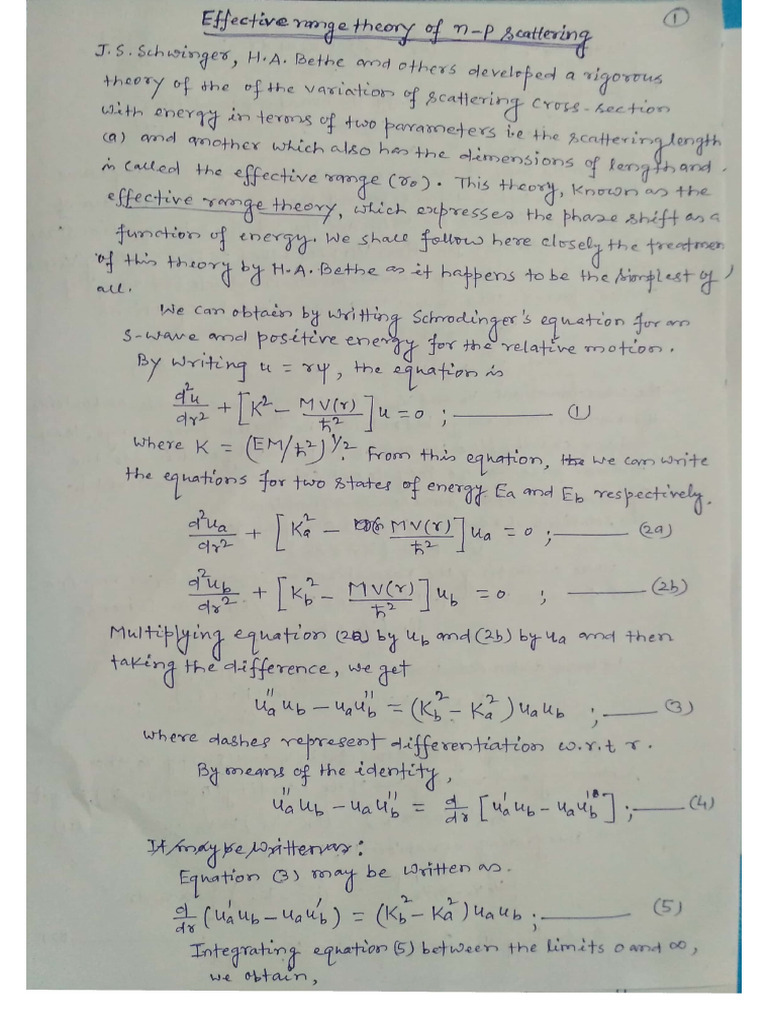 Effective range theory of n-p scattering ①
J.S. Schwinger, H.A. Bethe and others developed a rigorous
theory of the of the variation of scattering cross-section
with energy in terms of two parameters i.e the scattering length
(a) and another which also has the dimensions of length and
is called the effective range (r₀). This theory, known as the
effective range theory, which expresses the phase shift as a
function of energy. We shall follow here closely the treatmen
of this theory by H.A. Bethe as it happens to be the simplest of
all.
We can obtain by writting Schrodinger's equation for an
S-wave and positive energy for the relative motion.
By writing u = rψ, the equation is
d²u/dr² + [K² − MV(r)/ħ²]u = 0 ; ——— (1)
where K = (EM/ħ²)^1/2. From this equation, we can write
the equations for two states of energy Ea and Eb respectively.
d²ua/dr² + [Ka² − MV(r)/ħ²]ua = 0 ; ——— (2a)
d²ub/dr² + [Kb² − MV(r)/ħ²]ub = 0 ; ——— (2b)
Multiplying equation (2a) by ub and (2b) by ua and then
taking the difference, we get
ua''ub − uaub'' = (Kb² − Ka²)uaub ; ——— (3)
where dashes represent differentiation w.r.t r.
By means of the identity,
ua''ub − uaub'' = d/dr [ua'ub − uaub'] ; ——— (4)
It may be written as:
Equation (3) may be written as.
d/dr (ua'ub − uaub') = (Kb² − Ka²)uaub ; ——— (5)
Integrating equation (5) between the limits 0 and ∞,
we obtain,